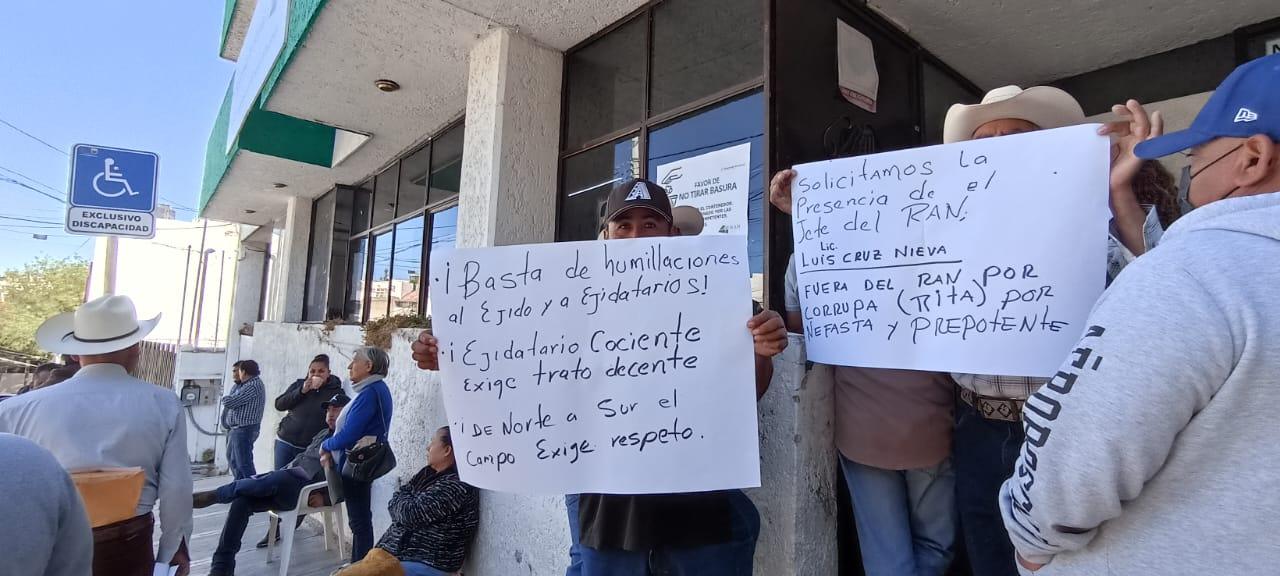 EXCLUSIVO
DISCAPACIDAD
FAVOR DE
NO TIRAR BASURA
·¡Basta de humillaciones
al Ejido y a Ejidatarios!
·¡Ejidatario Cociente
Exige trato decente
·¡DE Norte a Sur el
Campo Exige respeto.
Solicitamos La
Presencia de el
Jefe del RAN;
Lic.
LUIS CRUZ NIEVA
FUERA DEL RAN POR
CORRUPA (RITA) POR
NEFASTA y PREPOTENTE